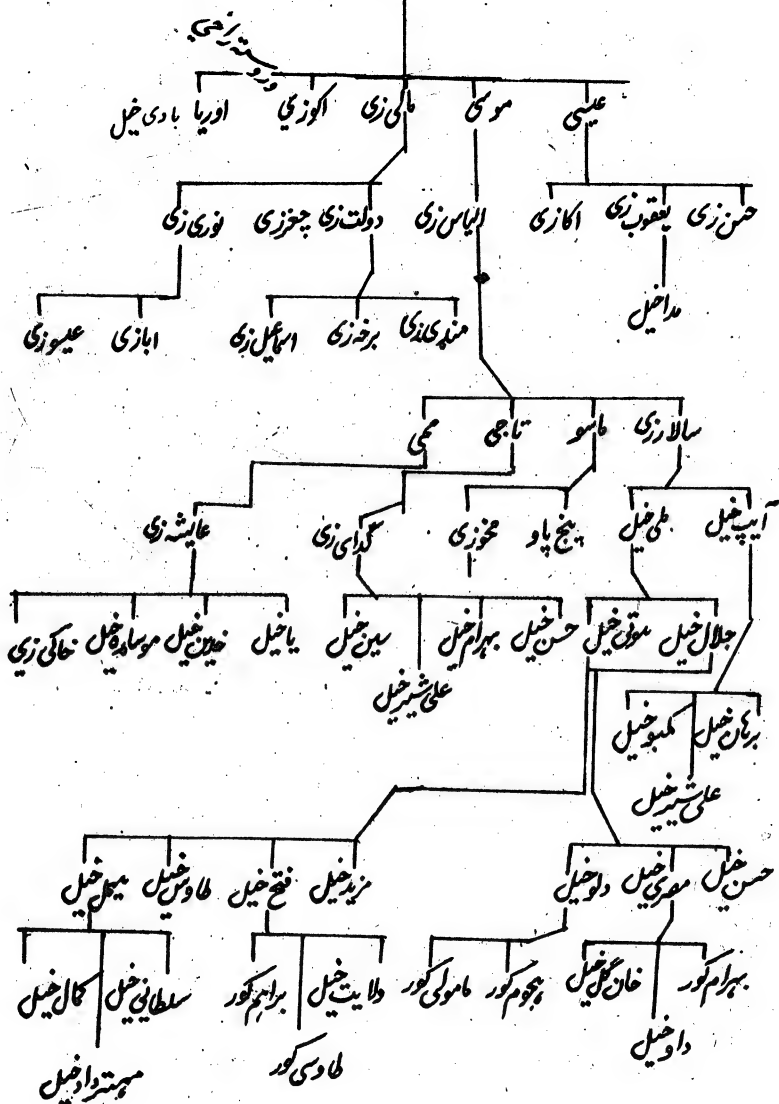 وروسته راځي
عیسی موسی مالی زی اکوزي اوریا بادی خیل
حسن زی یعقوب زی اکازی الیاس زی دولت زی چغرزی نوری زی
مداخیل
مندی زی برخه زی اسماعیل زی ابازی عیسوزی
سالارزی ماسو تاجی ممی
آیپ خیل ملی خیل پینځ پاو مخوزی گدای زی عایشه زی
جلال خیل موتی خیل حسن خیل بهرام خیل سین خیل یاخیل خدین خیل موساره خیل خاکی زي
علی شیر خیل
برهان خیل کمبو خیل
علی شیر خیل
حسن خیل مصري خیل دلو خیل مزید خیل فتح خیل طاوس خیل میکل خیل
بهرام کور خان گل خیل پنجوم کور ماموکی کور ولایت خیل براهیم کور سلطاني خیل کمال خیل
داو خیل
طاوسی کور
مهتر داد خیل